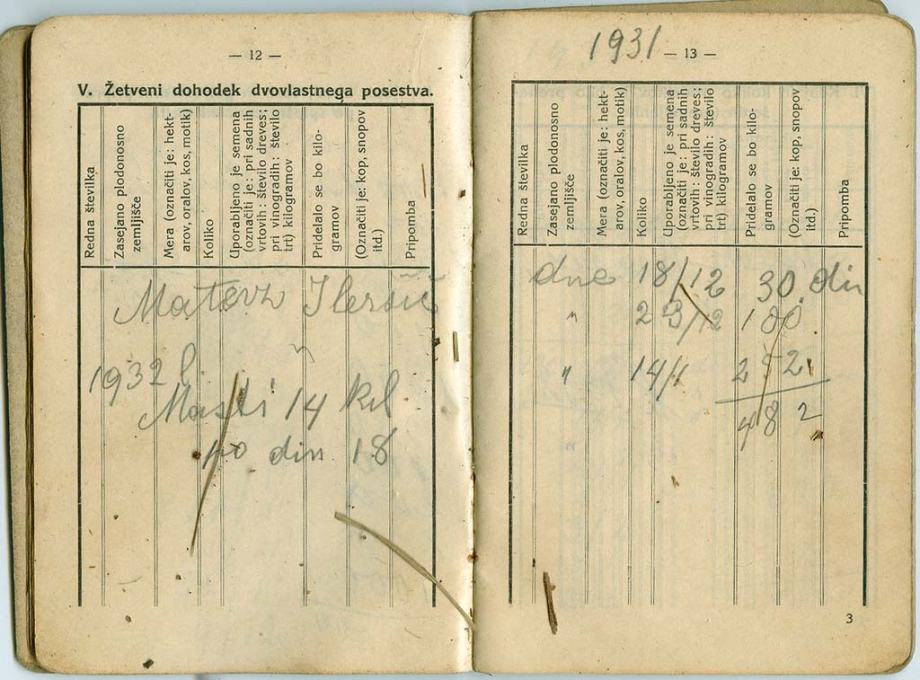 — 12 —
V. Žetveni dohodek dvovlastnega posestva.
Redna številka
Zasejano plodonosno
zemljišče
Mera (označiti je: hekt-
arov, oralov, kos, motik)
Koliko
Uporabljeno je semena
(označiti je: pri sadnih
vrtovih: število dreves;
pri vinogradih: število
trt) kilogramov
Pridelalo se bo kilo-
gramov
(Označiti je: kop, snopov
itd.)
Pripomba
Matevz
1932 l.
Masti 14 kil
po din 18
1931
— 13 —
Redna številka
Zasejano plodonosno
zemljišče
Mera (označiti je: hekt-
arov, oralov, kos, motik)
Koliko
Uporabljeno je semena
(označiti je: pri sadnih
vrtovih: število dreves;
pri vinogradih: število
trt) kilogramov
Pridelalo se bo kilo-
gramov
(Označiti je: kop, snopov
itd.)
Pripomba
dne 18/12 30 din
" 23/12
" 14/1 252
482
3